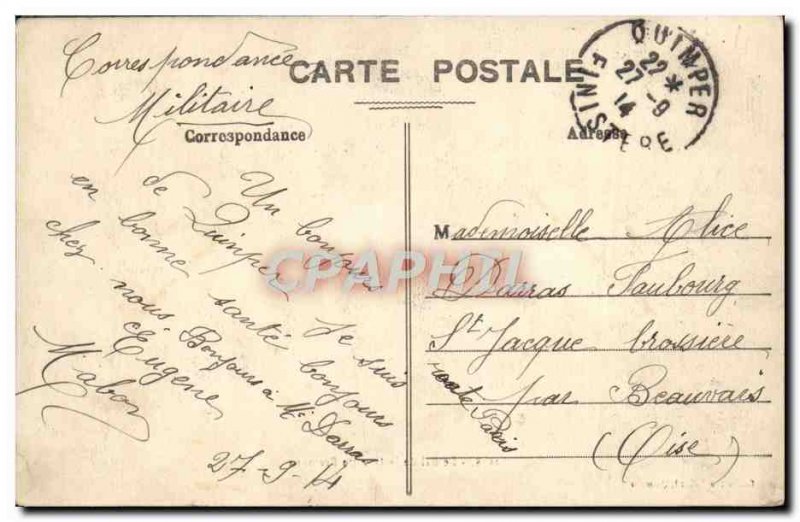 Correspondance
Militaire
CARTE POSTALE
Correspondance
Adresse
QUIMPER
22 *
27 - 9
14
FINISTERE
Un bonjour
de Quimper Je suis
en bonne santé bonjours
chez nous. Bonjours à Mr Darras
Eugene
Mabon
27-9-14
Mademoiselle Alice
Darras Faubourg
St Jacque brossiere
route Paris
par Beauvais
(Oise)
CPAPHIL